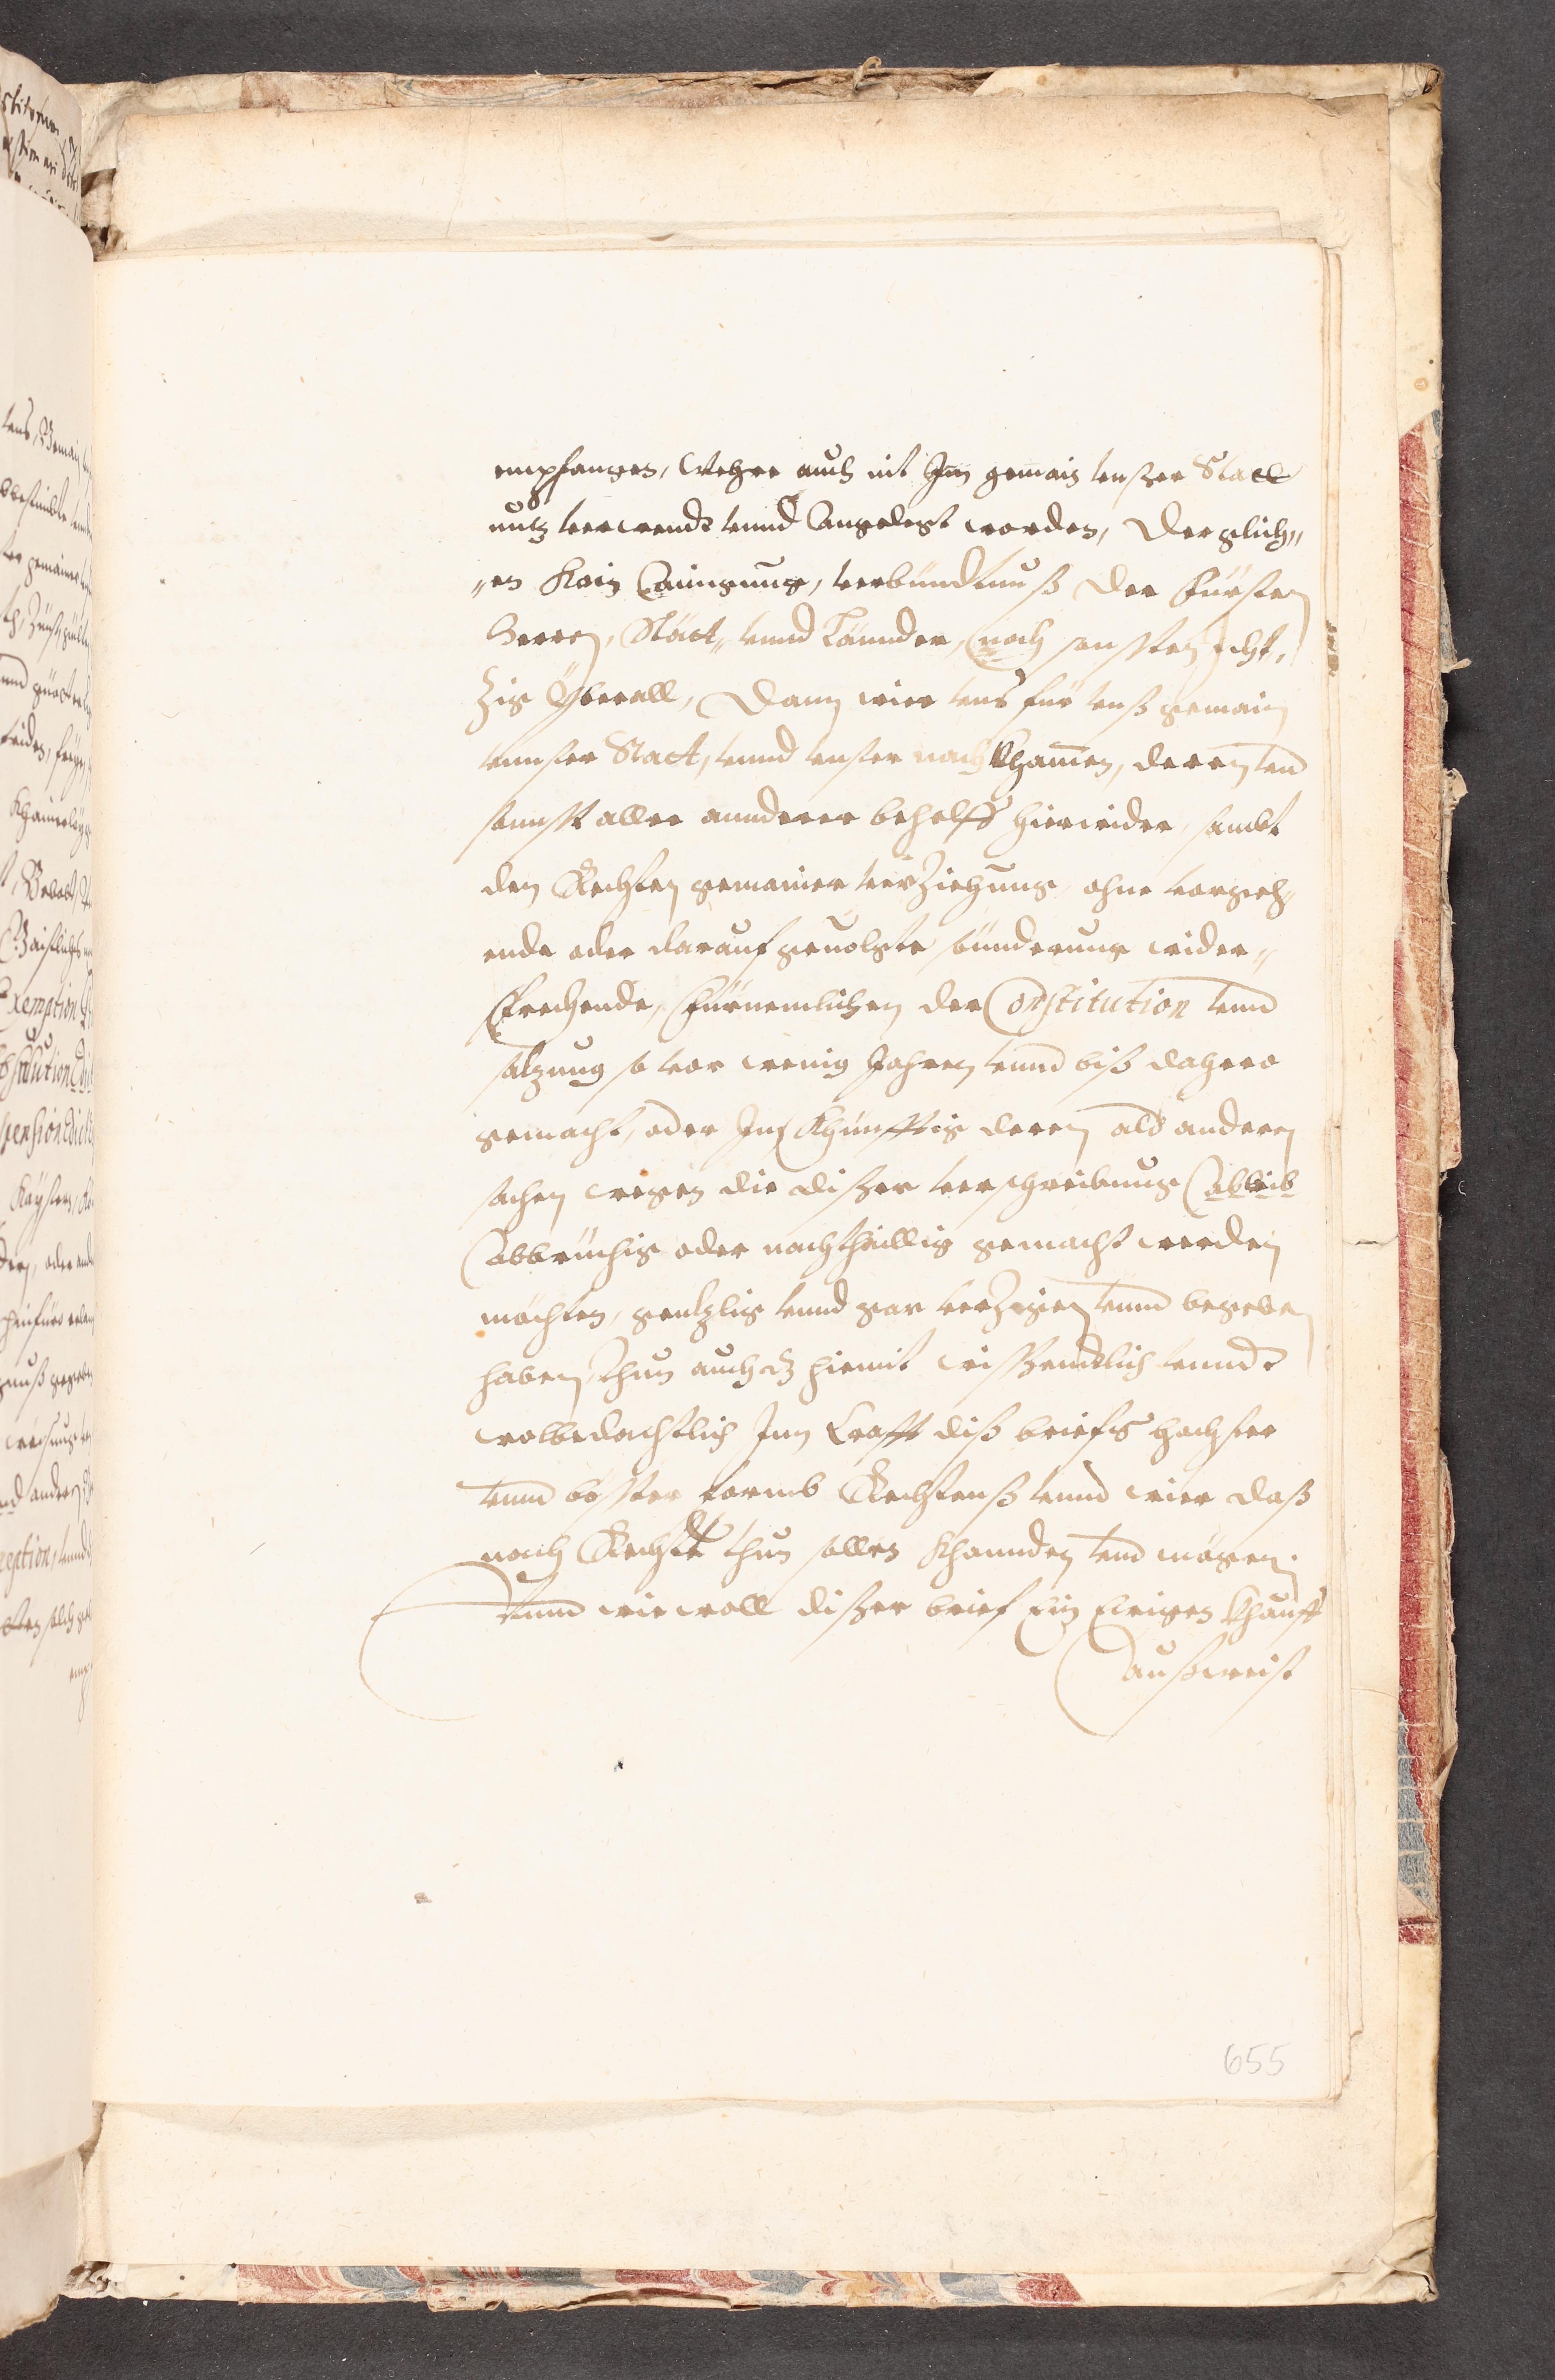 empfangen, Wehre auch nit Inn gemain unßer Statt
nutz verwendt unnd Angelegt worden, Dergleich„
„en Kain Ainigung, verbündtnuß der Fürsten
Herren, Stätt, unnd Länder, noch sonsten icht,
zig Yberall, Dann wier unß für unß gemain
unnser Statt, unnd unser nachkhamen, deren und
sonnst aller annderer behelff hierwider, sambt
den Rechten gemainer verziehung ohne vorgeh„
ende oder darauf gevolgte sünderung wider„
sprechende, Fürnemlichen der Constitution unnd
satzung so vor wenig Jahren unnd biß dahero
gemacht, oder Inn Khünfftig deren ald anderen
sachen wegen die dißer verschreibung
Abbrüchig oder nachthaillig gemacht werden
möchten, gentzlig unnd gar verzigen unnd begeben
haben, Thun auch dz hiemit wissendtlich unnd
wolbedachtlich Inn Krafft diß briefs hochster
unnd bösster formb Rechtenß unnd wier daß
nach Recht thun sollen Khönnden und mögen.
Unnd wiewoll dißer brief Ein Ewigen Khauff
außweist
655